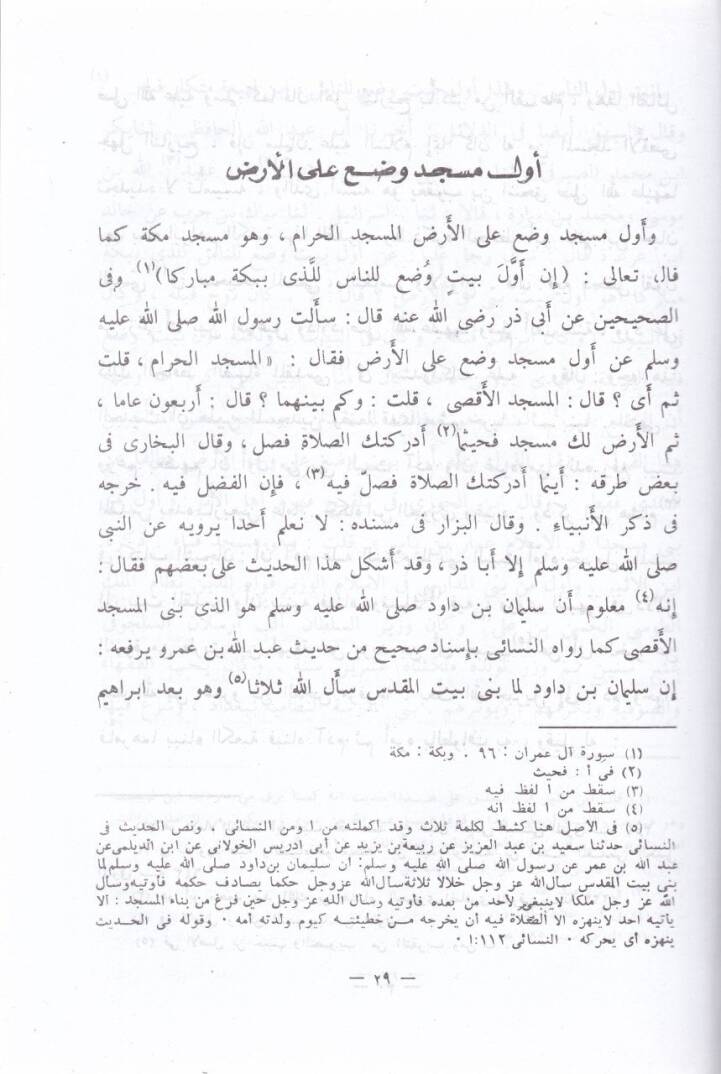 أول مسجد وضع على الأرض
وأول مسجد وضع على الأَرض المسجد الحرام ، وهو مسجد مكة كما
قال تعالى : (إِن أَوَّلَ بيتٍ وُضع للناس للَّذى ببكة مباركا)(١) وفى
الصحيحين عن أَبى ذر رضى الله عنه قال : سأَلت رسول الله صلى الله عليه
وسلم عن أول مسجد وضع على الأَرض فقال : «المسجد الحرام ، قلت
ثم أَى ؟ قال : المسجد الأَقصى ، قلت : وكم بينهما ؟ قال : أَربعون عاما ،
ثم الأَرض لك مسجد فحيثما(٢) أَدركتك الصلاة فصل ، وقال البخارى فى
بعض طرقه : أَينما أَدركتك الصلاة فصلّ فيه(٣) ، فإِن الفضل فيه . خرجه
فى ذكر الأَنبياءِ . وقال البزار فى مسنده : لا نعلم أَحدا يرويه عن النبي
صلى الله عليه وسلم إِلا أَبا ذر ، وقد أَشكل هذا الحديث على بعضهم فقال :
إنه(٤) معلوم أَن سليمان بن داود صلى الله عليه وسلم هو الذى بنى المسجد
الأَقصى كما رواه النسائى بإِسناد صحيح من حديث عبد الله بن عمرو يرفعه :
إن سليمان بن داود لما بنى بيت المقدس سأَل الله ثلاثا(٥) وهو بعد ابراهيم
(١) سورة آل عمران : ٩٦ . وبكة : مكة
(٢) فى أ : فحيث
(٣) سقط من ا لفظ فيه
(٤) سقط من ا لفظ انه
(٥) فى الأصل هنا كشط لكلمة ثلاث وقد اكملته من ا ومن النسائى . ونص الحديث فى
النسائى حدثنا سعيد بن عبد العزيز عن ربيعة بن يزيد عن أبى ادريس الخولانى عن ابن الديلمى عن
عبد الله بن عمر عن رسول الله صلى الله عليه وسلم: ان سليمان بن داود صلى الله عليه وسلم لما
بنى بيت المقدس سال الله عز وجل خلالا ثلاثة سال الله عز وجل حكما يصادف حكمه فاوتيه وسأل
الله عز وجل ملكا لاينبغى لأحد من بعده فاوتيه وسال الله عز وجل حين فرغ من بناء المسجد : الا
ياتيه احد لاينهزه الا الصلاة فيه أن يخرجه من خطيئته كيوم ولدته أمه . وقوله فى الحديث
ينهزه أى يحركه . النسائى ١١٢:١
— ٢٩ —